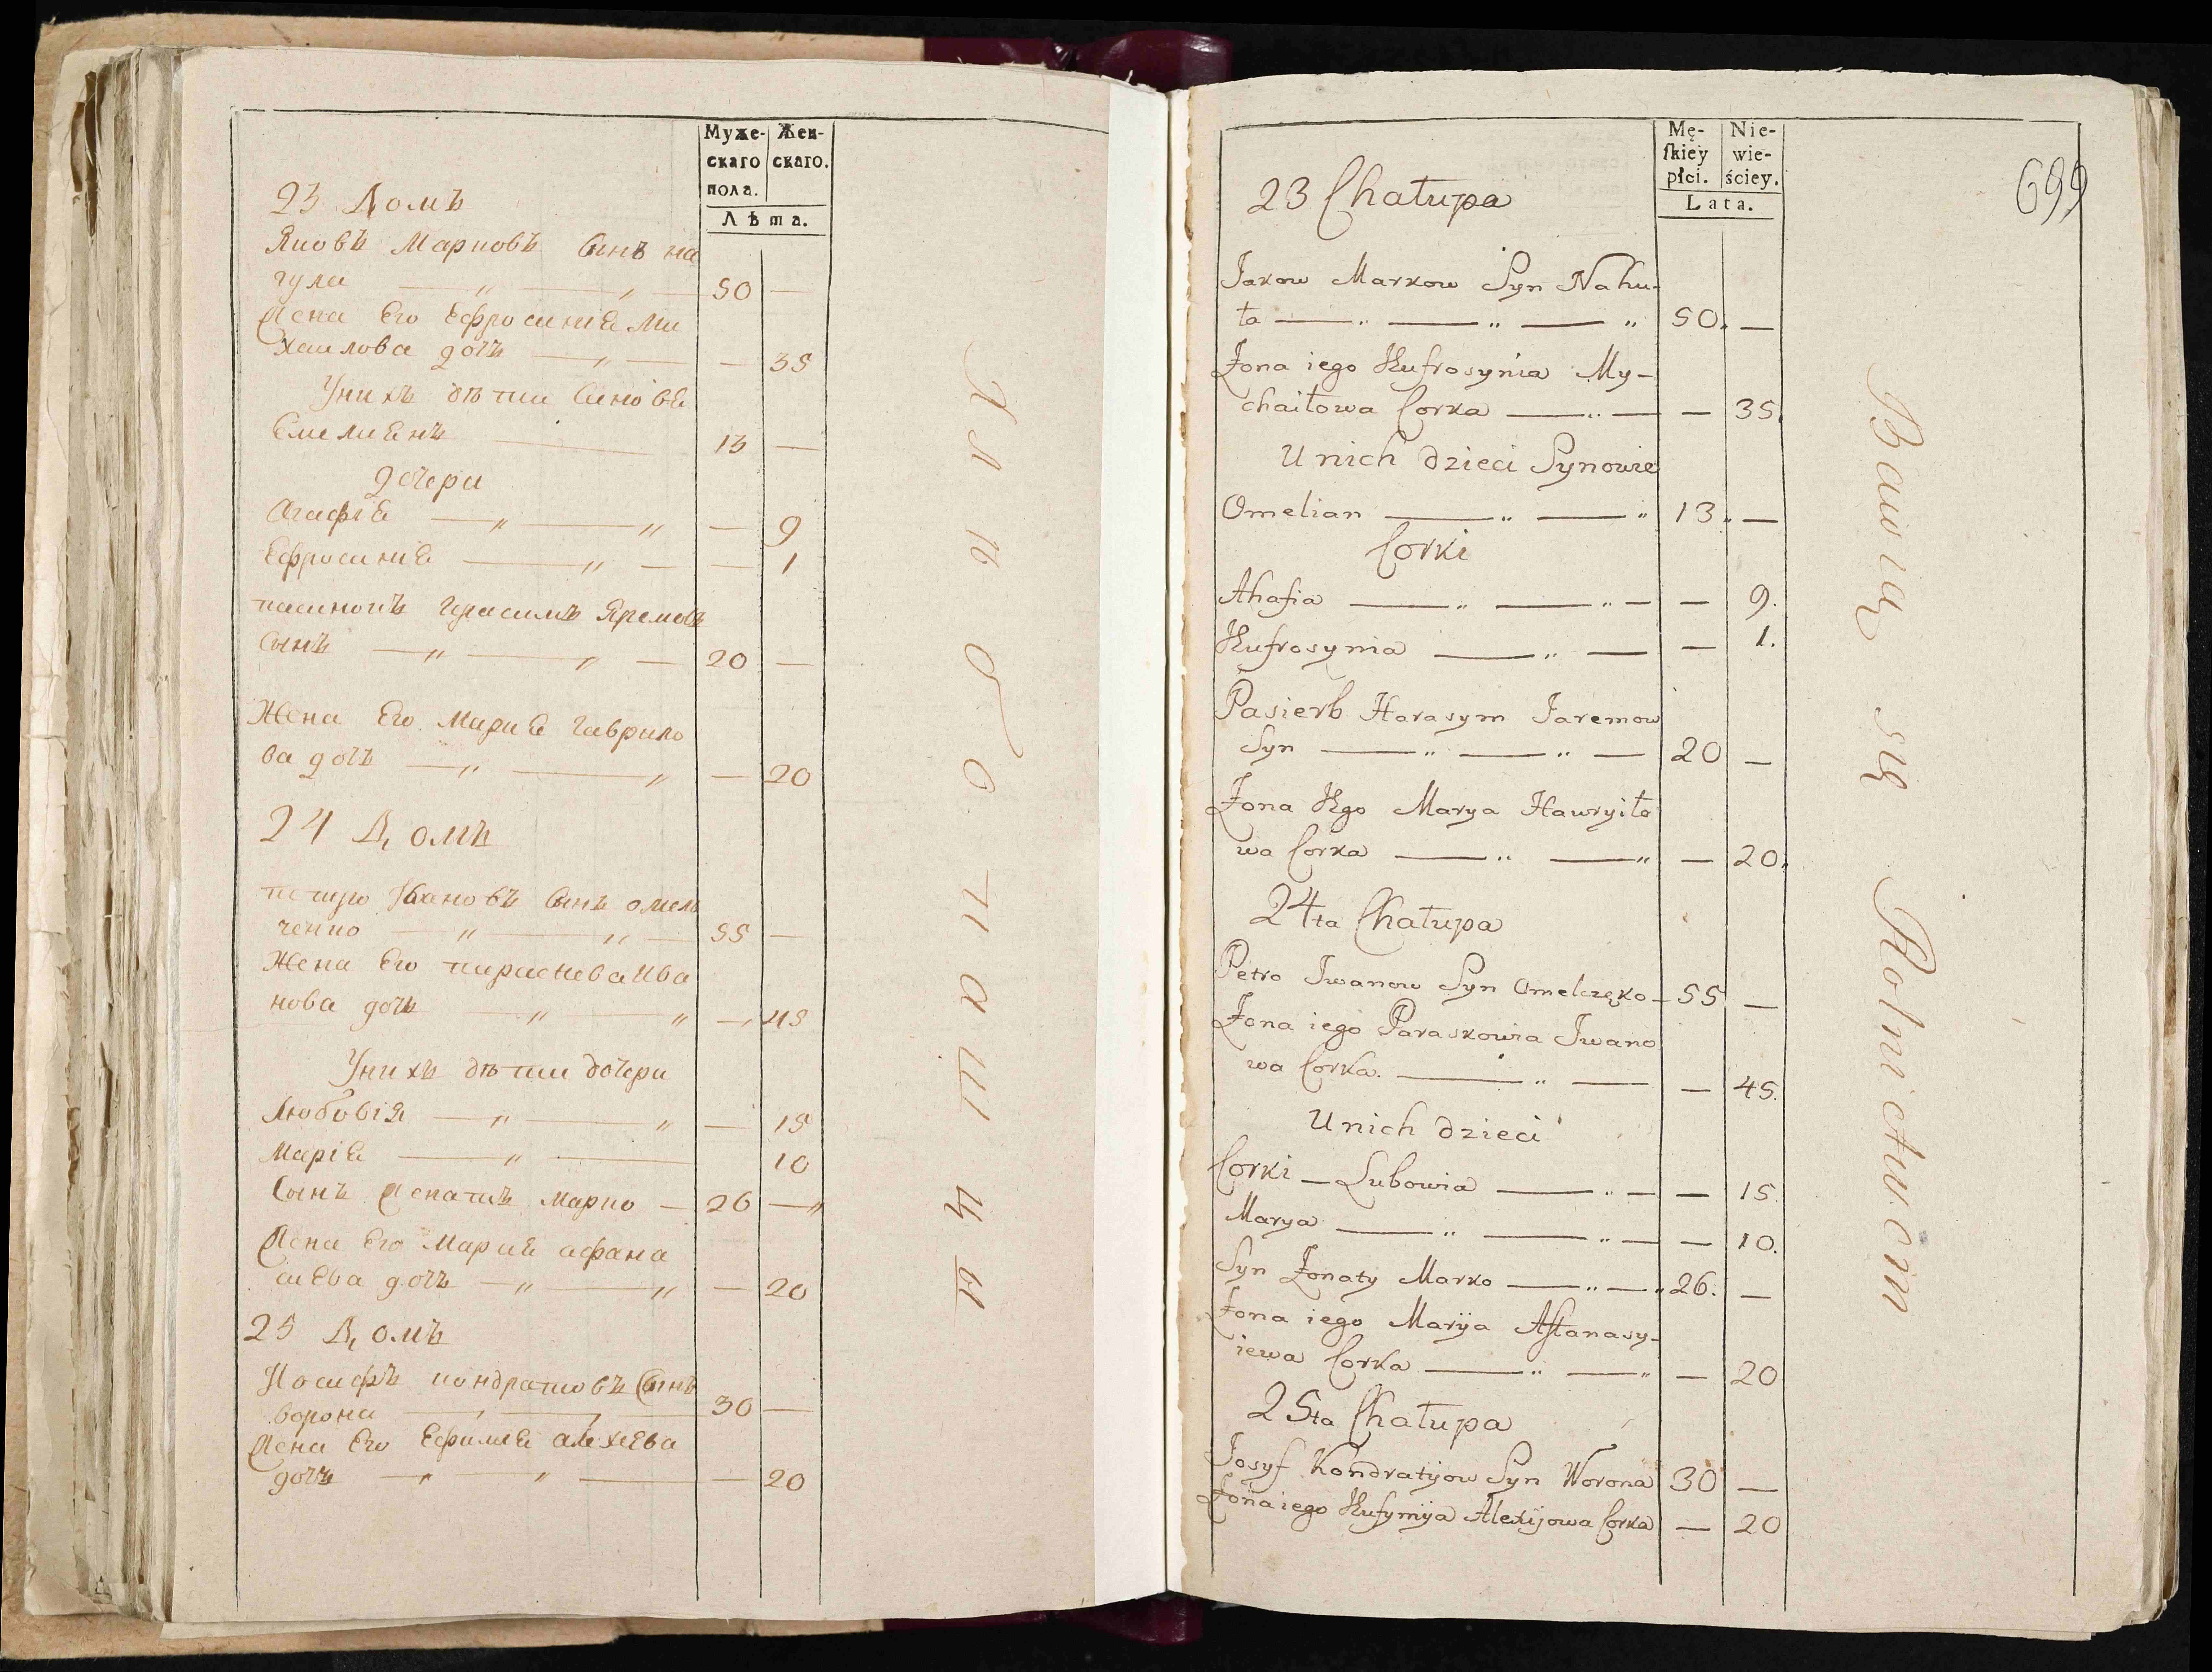 Муже-
скаго
пола.
Жен-
скаго.
Лѣта.
23 Домъ
Яковъ Марковъ Сынъ на
гула — „ — „ — 50 —
Жена Его Ефросиния Ми
хаилова дочъ — „ — — 35
У нихъ дѣти Синовя
Емелиянъ — 13 —
дочери
Агафія — „ — „ — 9
Ефросиния — „ — — 1
пасинокъ Герасимъ Яремовъ
Сынъ — „ — „ — 20 —
Жена Его Мария Гаврило
ва дочъ — „ — „ — 20
24 Домъ
петро Ивановъ Сынъ омель
ченко — „ — „ — 55 —
Жена Его параскева Ива
нова дочъ — „ — „ — 45
У нихъ дѣти дочери
Любовія — „ — „ — 15
Марія — „ — 10
Сынъ Женатъ Марко — 26 — „
Жена Его Мария афана
сиева дочъ — „ — „ — 20
25 Домъ
Иосифъ кондратовъ Сынъ
ворона — 30 —
Жена Его Ефимия алехиева
дочъ — „ — „ — — 20
699
Mę-
skiey
płci.
Nie-
wie-
ściey.
Lata.
23 Chałupa
Jakow Markow Syn Nahu-
ła — „ — „ — „ 50. —
Żona iego Eufrosynia My-
chaiłowa Corka — „ — — 35.
U nich dzieci Synowie
Omelian — „ — „ 13. —
Corki
Ahafia — „ — „ — — 9.
Eufrosynia — „ — — 1.
Pasierb Harasym Jaremow
Syn — „ — „ — 20 —
Żona Ego Marya Hawryiło
wa Corka — „ — „ — 20.
24ta Chałupa
Petro Iwanow Syn Omelczęko — 55 —
Żona iego Paraskowia Iwano
wa Corka. — „ — — 45.
U nich dzieci
Corki — Lubowia — „ — — 15.
Marya — „ — „ — — 10.
Syn Żonaty Marko — „ — „ 26. —
Żona iego Maryia Aftanasy-
iewa Corka — „ — „ — 20
25ta Chałupa
Josyf Kondratyiow Syn Worona 30 —
Żona iego Eufymija Alexijowa Corka — 20
Bawią się Rolnictwem